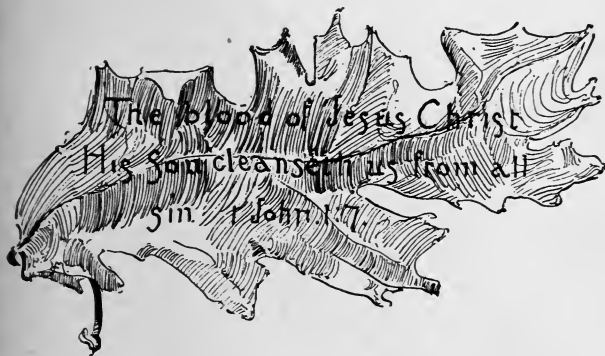 The blood of Jesus Christ
His Son cleanseth us from all
sin 1 John 1:7